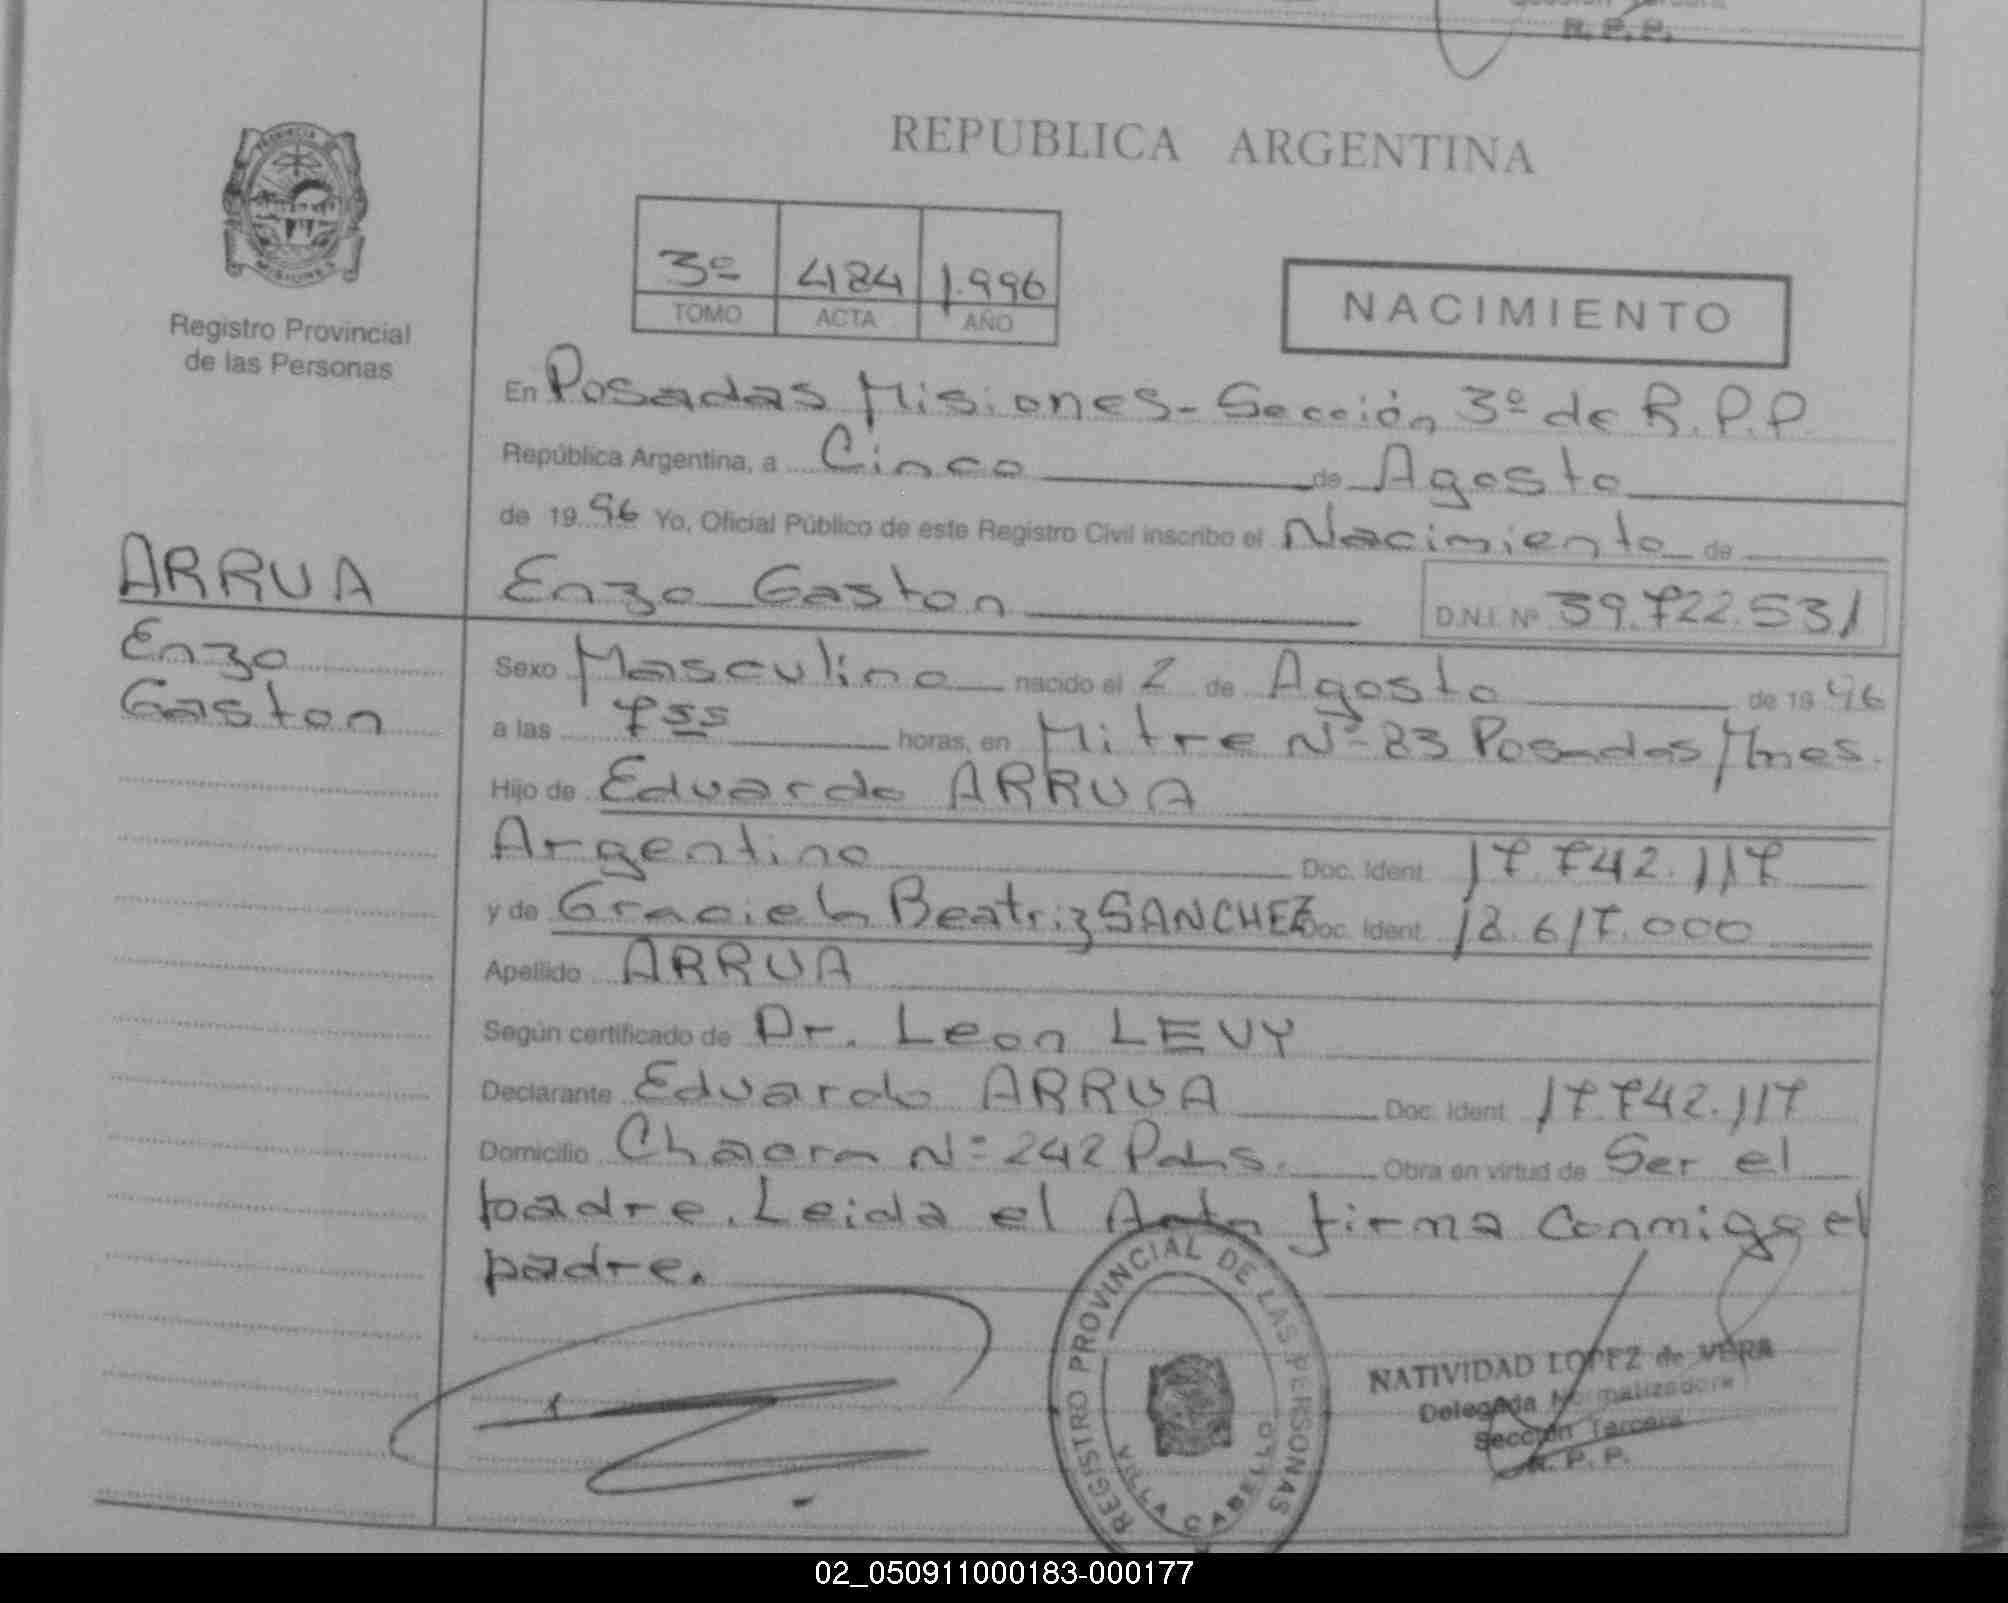 R. P. P.
REPUBLICA ARGENTINA
3º 484 1.996
TOMO ACTA AÑO
NACIMIENTO
Registro Provincial
de las Personas
En Posadas Misiones - Sección 3º de R.P.P.
República Argentina, a Cinco de Agosto
de 1996 Yo, Oficial Público de este Registro Civil inscribo el Nacimiento de
ARRUA Enzo Gaston D.N.I. Nº 39.722.531
Enzo
Gaston
Sexo Masculino nacido el 2 de Agosto de 1996
a las 7 55 horas, en Mitre Nº 83 Posadas Mnes.
Hijo de Eduardo ARRUA
Argentino Doc. Ident. 17.742.117
y de Graciela Beatriz SANCHEZ Doc. Ident. 18.617.000
Apellido ARRUA
Según certificado de Dr. Leon LEVY
Declarante Eduardo ARRUA Doc. Ident. 17.742.117
Domicilio Chacra Nº 242 Pdas. Obra en virtud de Ser el
padre. Leida el Acta firma Conmigo el
padre.
REGISTRO PROVINCIAL DE LAS PERSONAS
VILLA CABELLO
NATIVIDAD LOPEZ de VERA
Delegada Normalizadora
Sección Tercera
R. P. P.
02_050911000183-000177